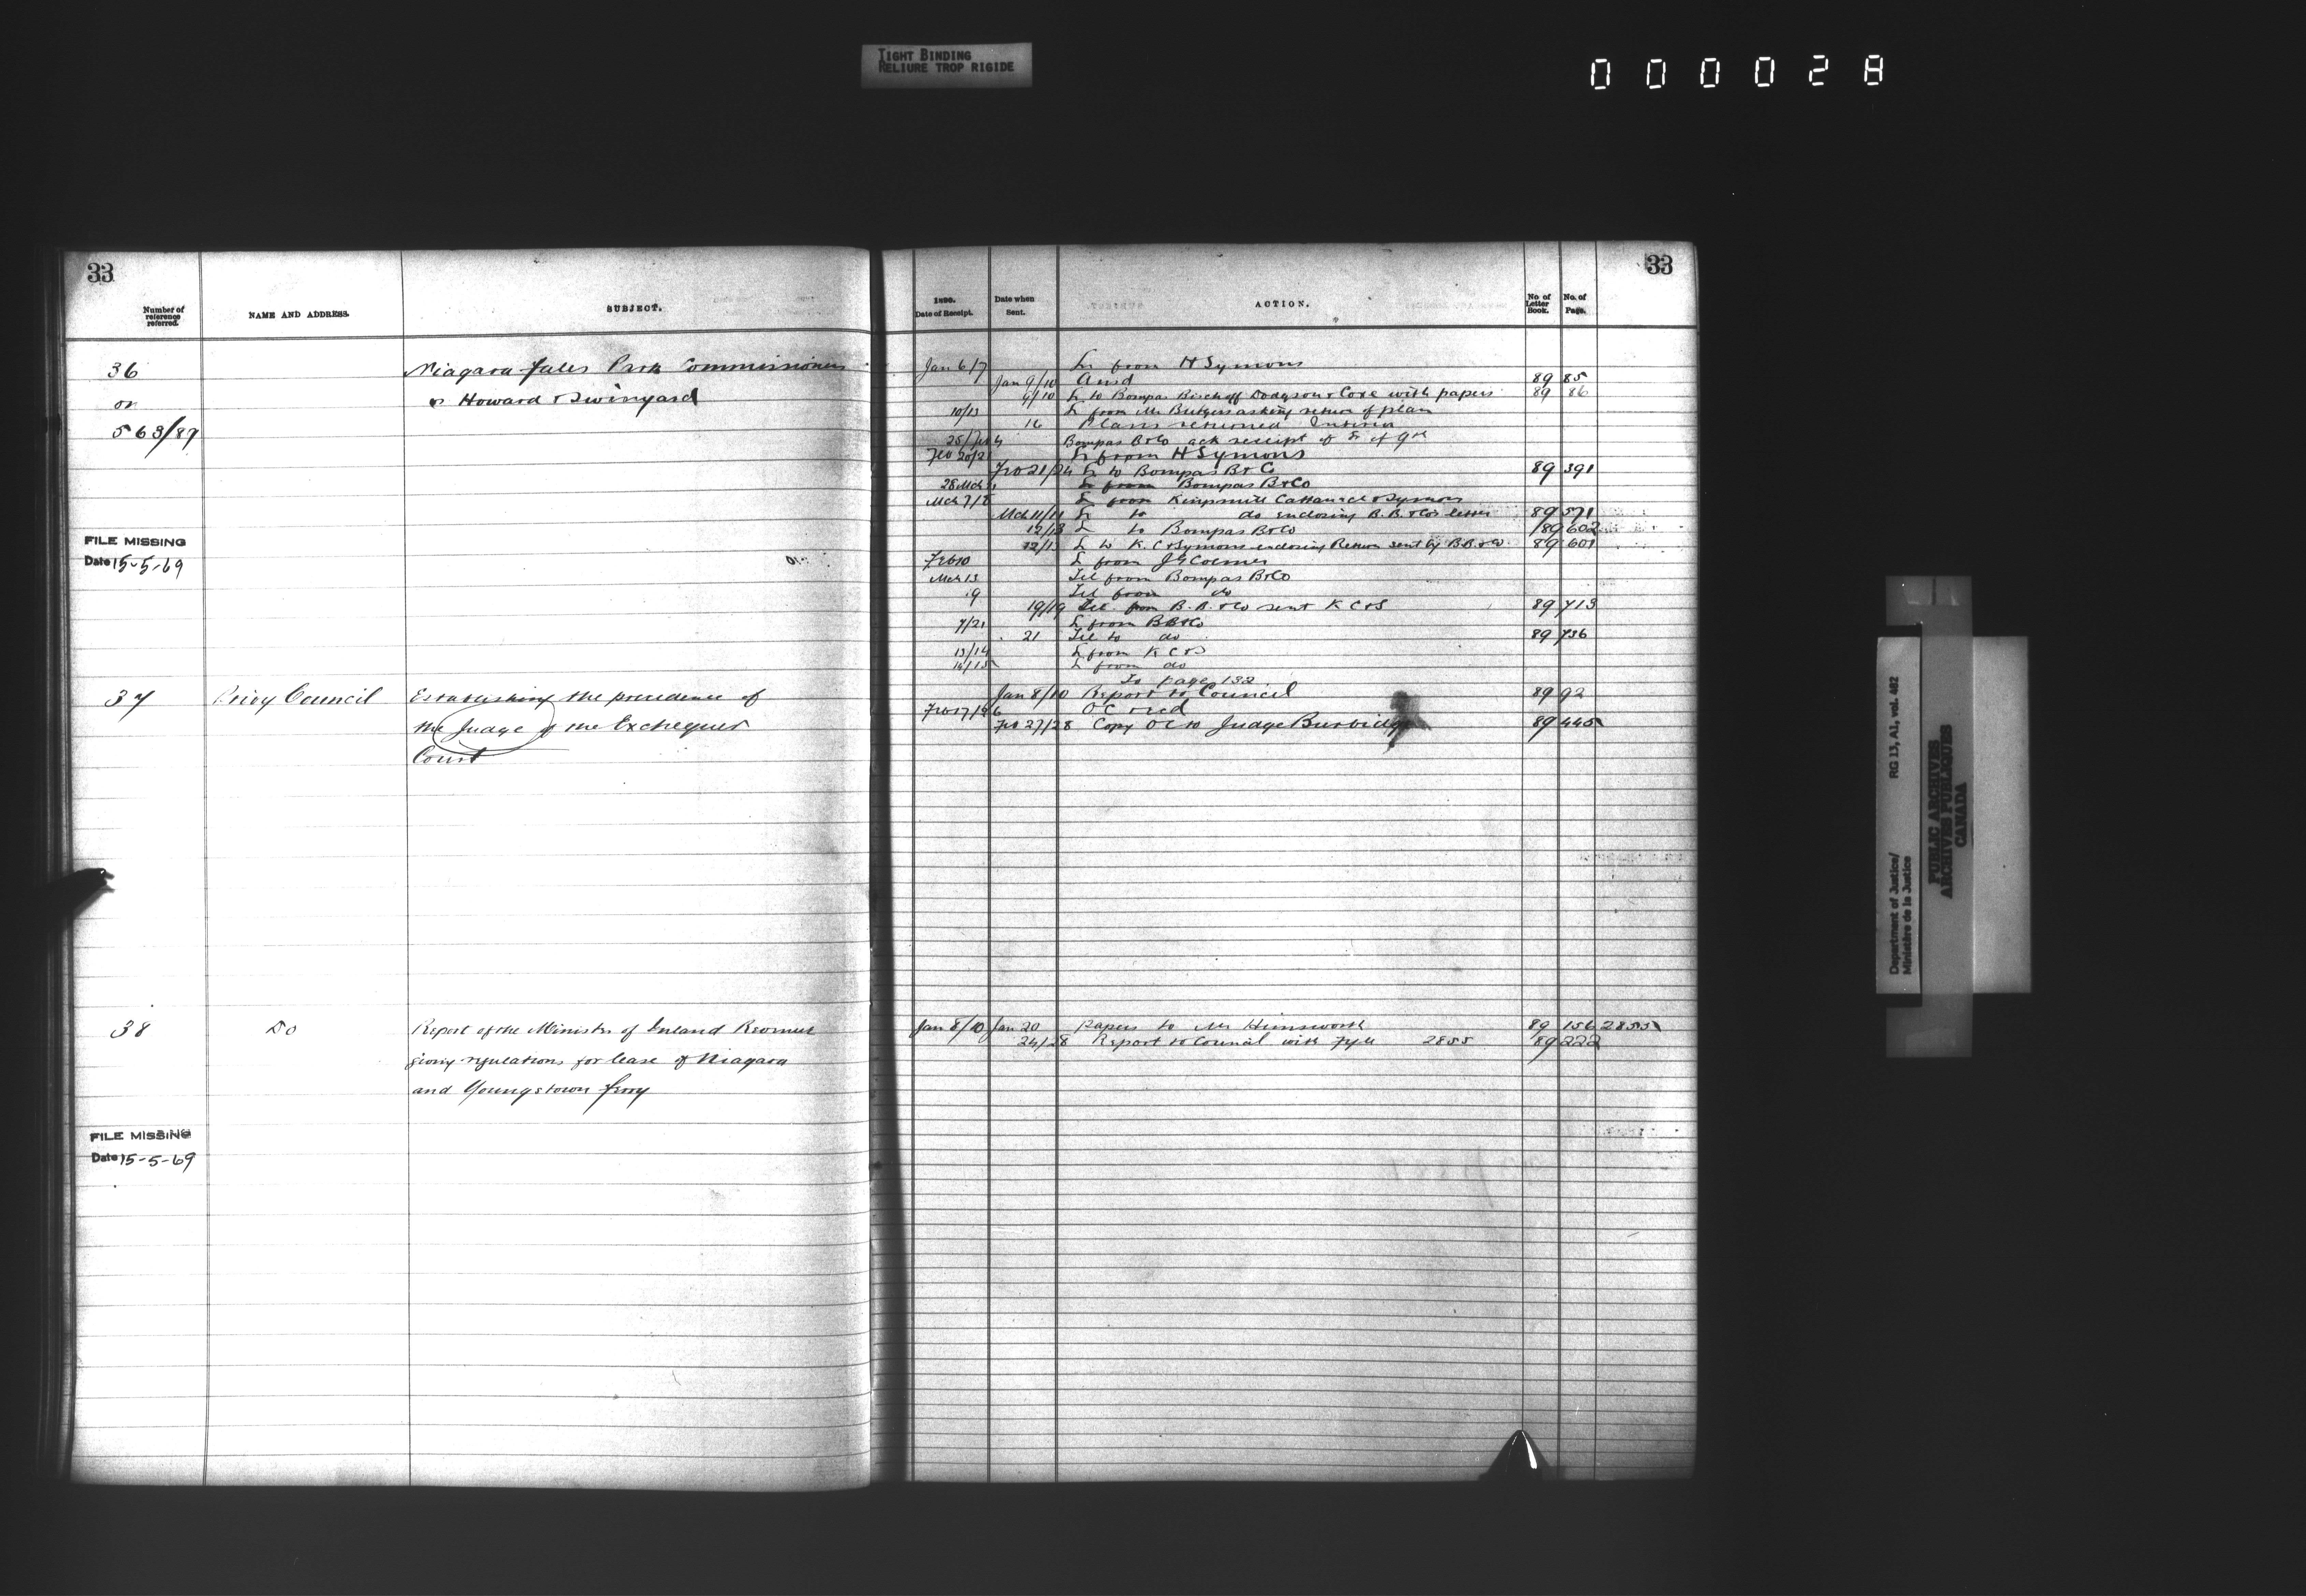 TIGHT BINDING
RELIURE TROP RIGIDE
000028
33
Number of reference referred.
NAME AND ADDRESS.
SUBJECT.
36
or
563/87
Niagara Falls Park Commissioners
v Howard & Swinyard
FILE MISSING
Date 15-5-69
37 Privy Council Establishing the precedence of
the Judge of the Exchequer
Court
38 Do Report of the Minister of Inland Revenue
giving regulations for lease of Niagara
and Youngstown ferry
FILE MISSING
Date 15-5-69
33
1890.
Date of Receipt.
Date when Sent.
ACTION.
No. of Letter Book.
No. of Page.
Jan 6/7 L from H Symons
Jan 9/10 Ansd 89 85
9/10 L to Bompas Bischoff Dodgson & Coxe with papers 89 86
10/13 L from Mr Burgess asking return of plan
16 Plans returned Interior
25/Feb 4 Bompas B&Co ack receipt of L of 9th
Feb 20/21 L from H Symons
Feb 21/24 L to Bompas B & Co 89 391
28 Mch L from Bompas B&Co
Mch 7/8 L from Kingsmill Cattanach & Symons
Mch 11/11 L to do enclosing B.B. & Co's letter 89 571
12/13 L to Bompas B&Co 89 602
12/13 L to K. C & Symons enclosing Return sent by B.B. & Co 89 601
Feb 10 L from J G Colmer
Mch 13 Tel from Bompas B&Co
19 Tel from do
19/19 Tel from B. B. & Co sent K C & S 89 713
7/21 L from BB&Co
21 Tel to do 89 736
13/14 L from K C & S
14/15 L from do
To page 132
Jan 8/10 Report to Council 89 92
Feb 17/26 O C recd
Feb 27/28 Copy O C to Judge Burbidge 89 445
Jan 8/10 Jan 20 Papers to Mr Himsworth 89 156 2855
24/28 Report to Council with Fyle 2855 89 222
Department of Justice/ RG 13, A1, vol. 482
Ministère de la Justice
PUBLIC ARCHIVES
ARCHIVES PUBLIQUES
CANADA